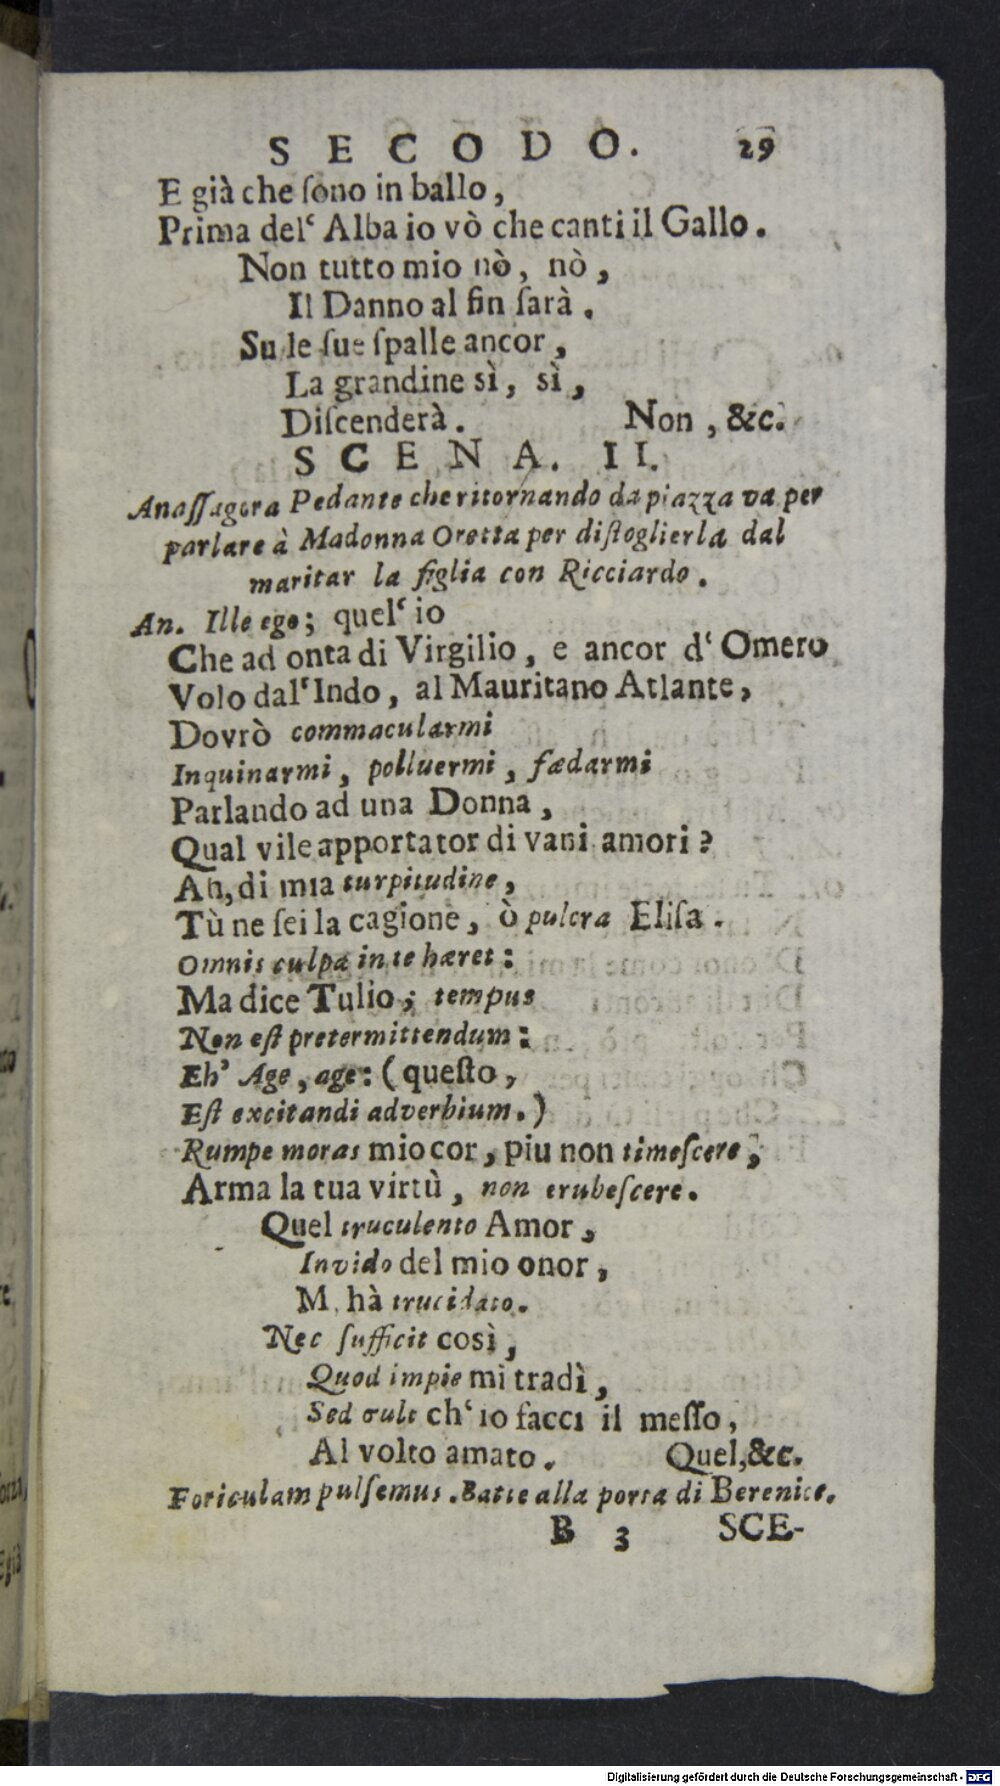 SECODO. 29
E già che ſono in ballo,
Prima delʿ Alba io vò che canti il Gallo.
Non tutto mio nò, nò,
Il Danno al fin ſarà.
Su le ſue ſpalle ancor,
La grandine sì, sì,
Diſcenderà. Non, &c.
SCENA. II.
Anaſſagora Pedante che ritornando da piazza va per
parlare à Madonna Oretta per diſtoglierla dal
maritar la figlia con Ricciardo.
An. Ille ego; quelʿ io
Che ad onta di Virgilio, e ancor dʿ Omero
Volo dalʿ Indo, al Mauritano Atlante,
Dovrò commacularmi
Inquinarmi, polluermi, fædarmi
Parlando ad una Donna,
Qual vile apportator di vani amori?
Ah, di mia turpitudine,
Tù ne ſei la cagione, ò pulcra Eliſa.
Omnis culpa in te hæret:
Ma dice Tulio; tempus
Non eſt pretermittendum:
Eh' Age, age: (queſto,
Eſt excitandi adverbium.)
Rumpe moras mio cor, piu non timeſcere,
Arma la tua virtù, non erubeſcere.
Quel truculento Amor,
Invido del mio onor,
M, hà trucidato.
Nec ſufficit così,
Quod impie mi tradì,
Sed vult chʿ io facci il meſſo,
Al volto amato. Quel, &c.
Foriculam pulſemus. Batte alla porta di Berenice.
B 3 SCE-
Digitalisierung gefördert durch die Deutsche Forschungsgemeinschaft - DFG